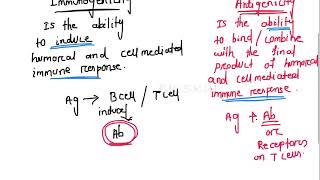 Immunogenicity
Is the ability
to induce
humoral and cell mediated
immune response.
Ag → B cell / T cell
induces
Ab
Antigenicity
Is the ability
to bind/combine
with the final
product of humoral
and cell mediated
immune response.
Ag + Ab
or
Receptors
on T cells.